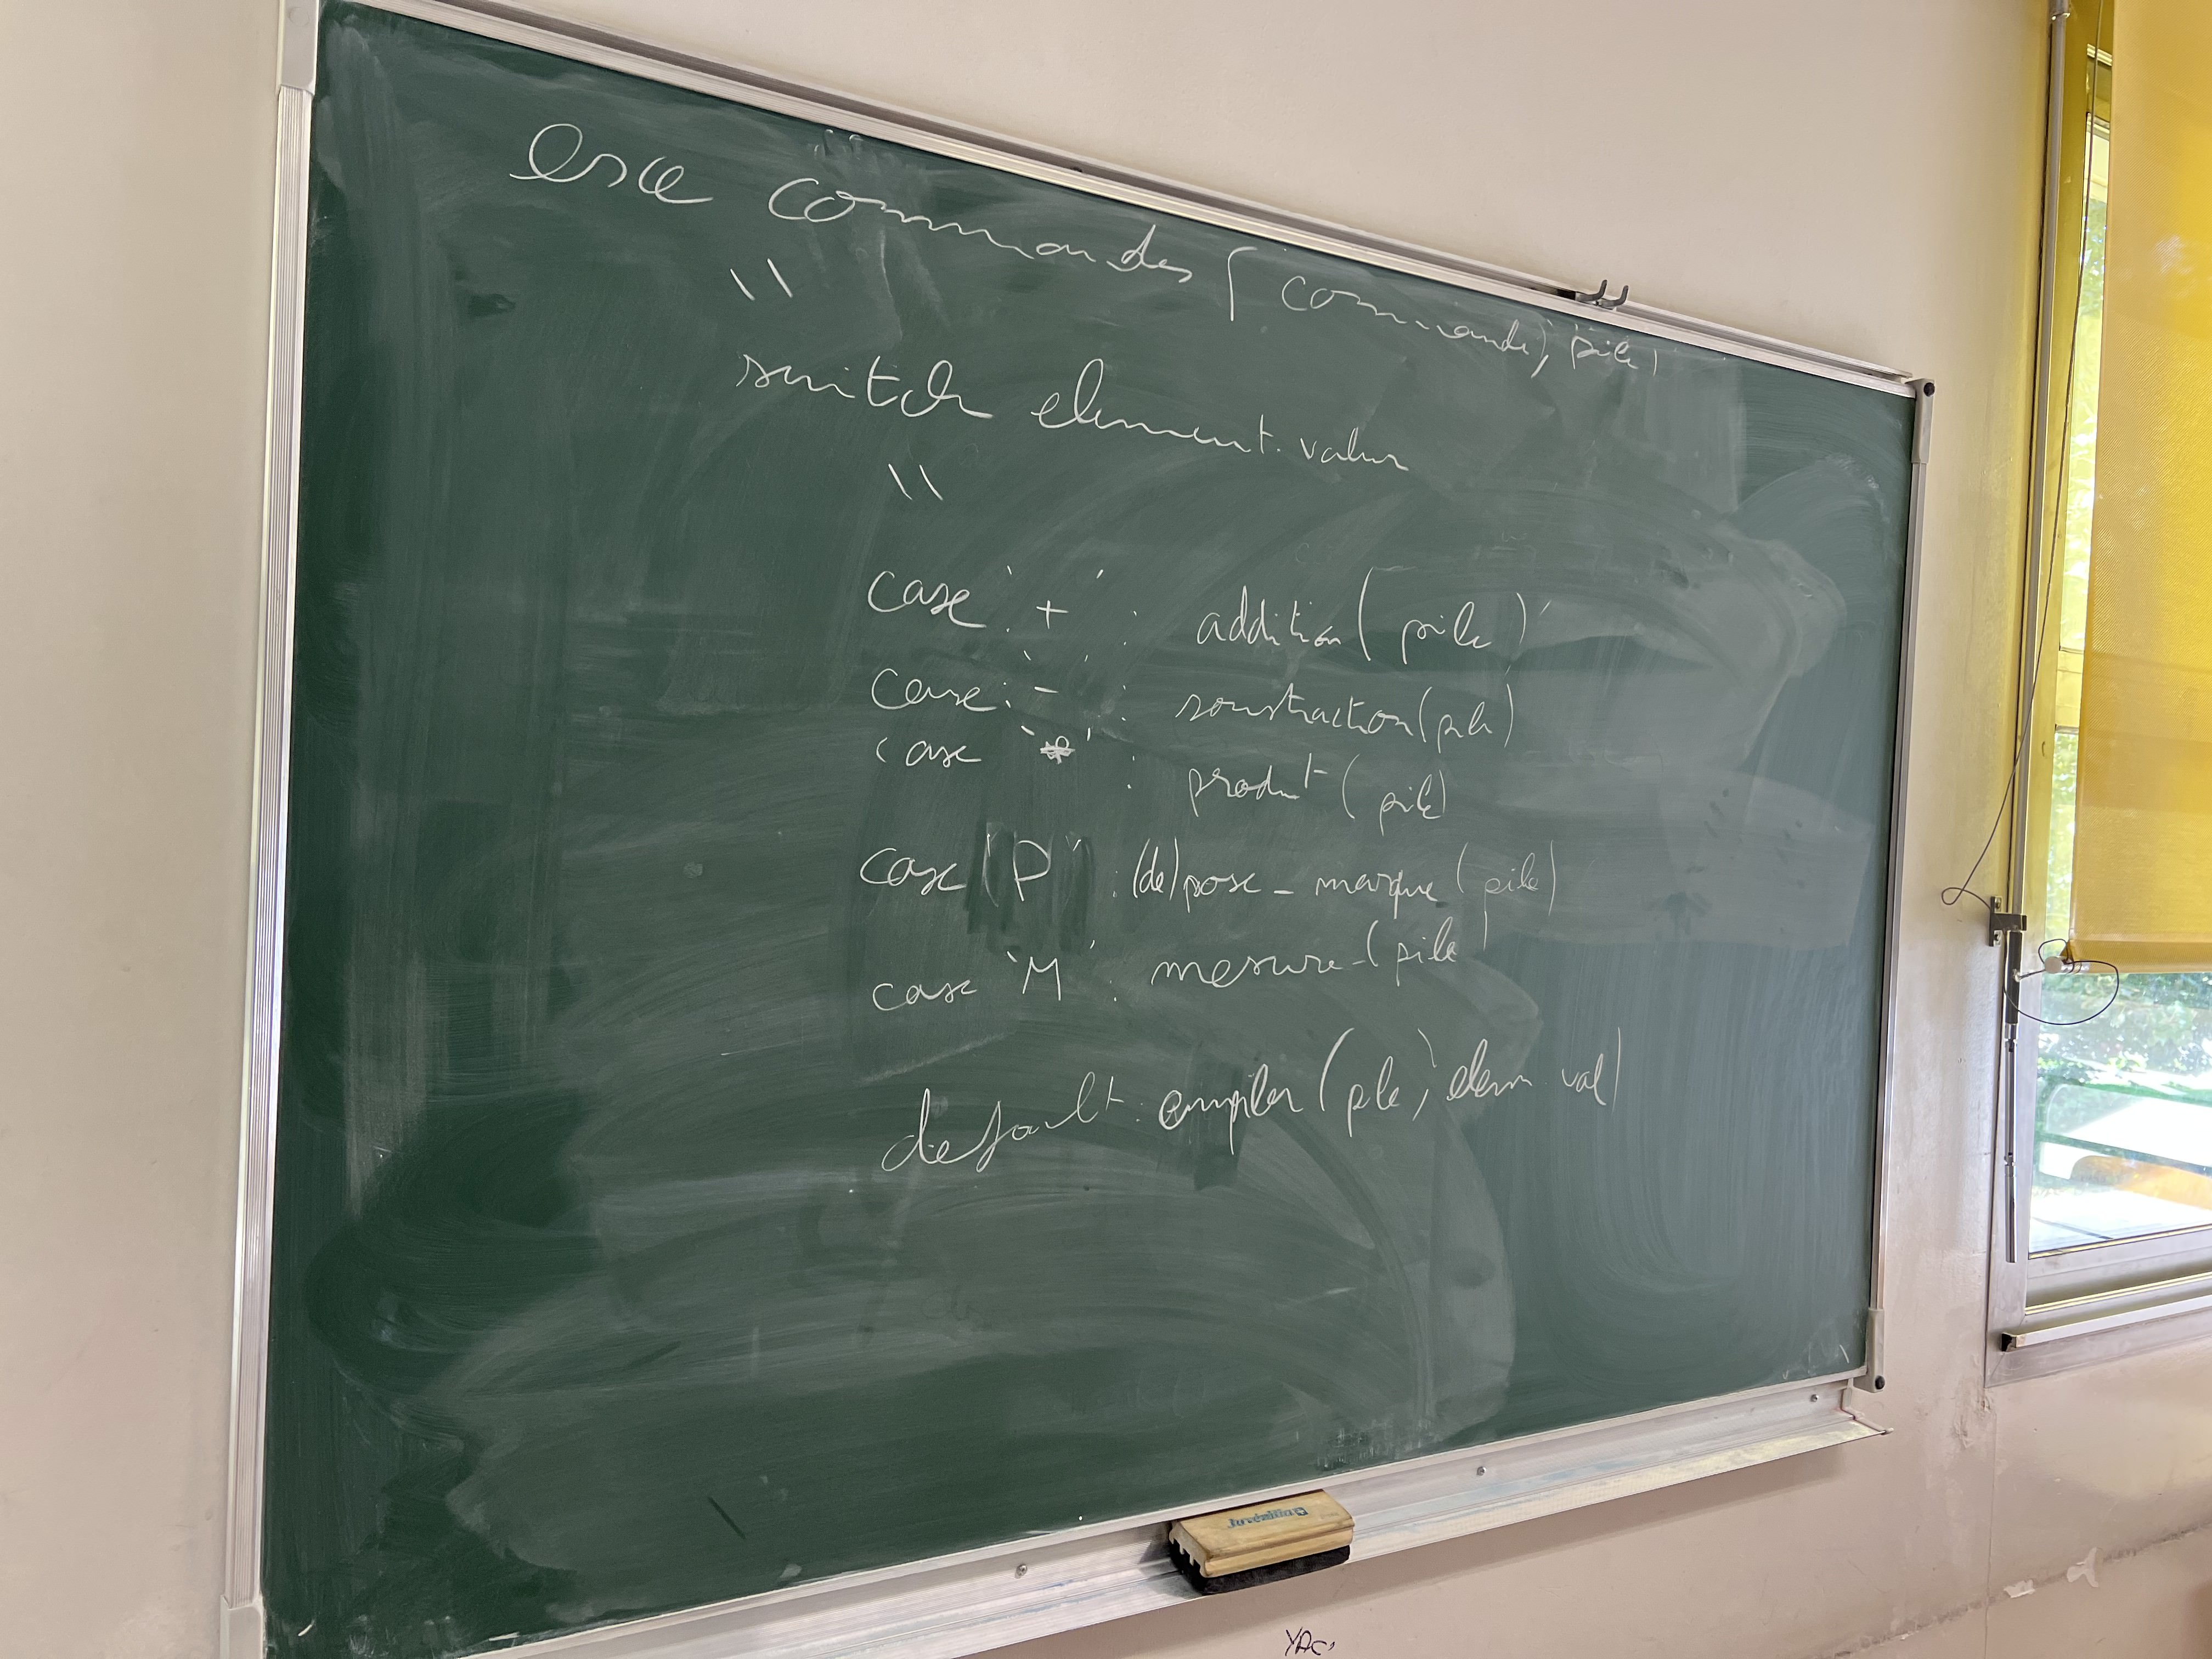 exe commandes ( commande, pile)
\\
switch element.value
\\
case '+' : addition( pile )
case '-' : soustraction(pile)
case '*' : produit ( pile)
case 'P' : (de)pose_marque ( pile)
case 'M' : mesure (pile)
default : empiler (pile, elem.val)
YAC